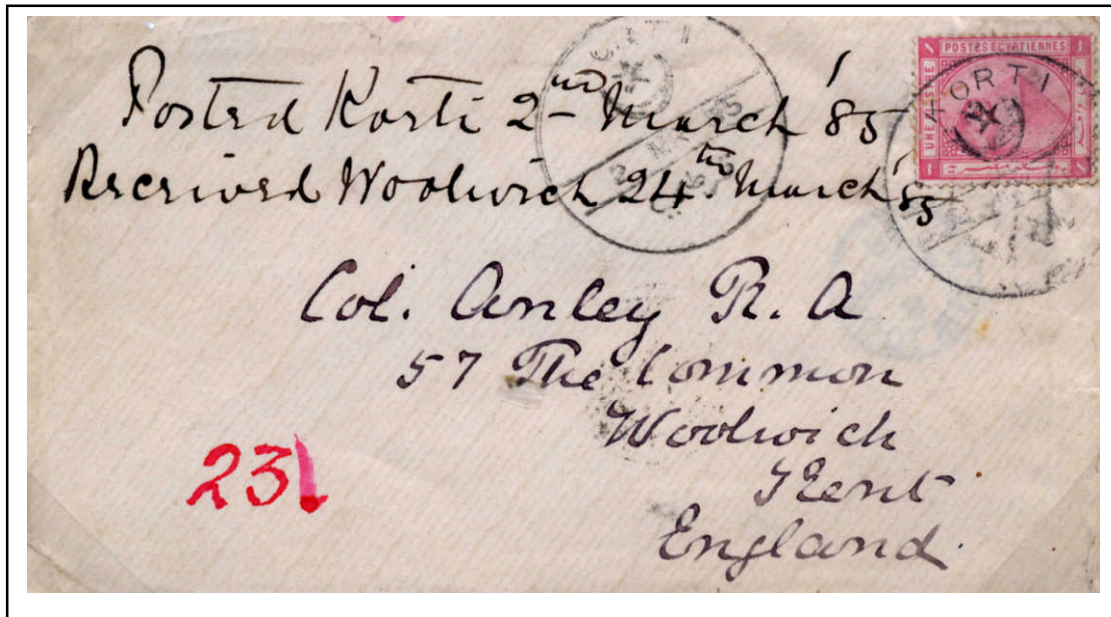 Posted Korti 2nd March '85
Received Woolwich 24th March '85
POSTES EGYPTIENNES
UNE PIASTRE
1
1
1
KORTI
KORTI
2 MR 85
Col. Anley R. A
57 The Common
Woolwich
Kent
England.
23